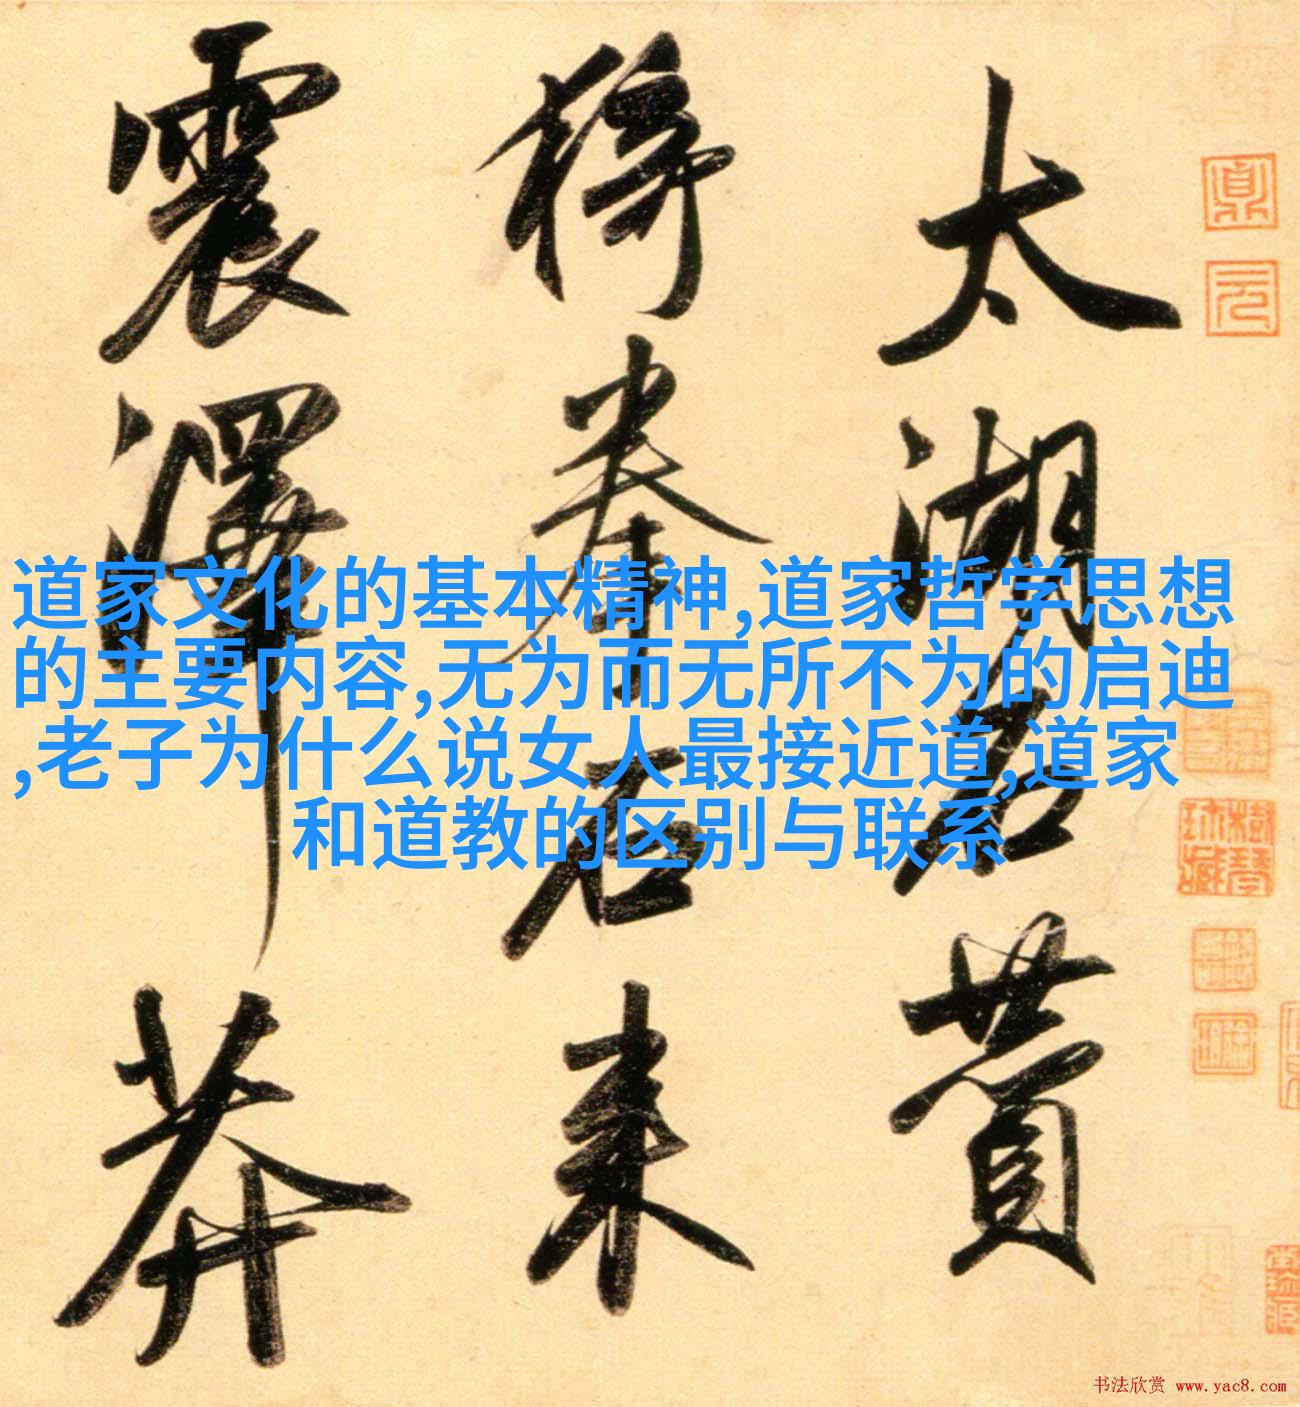 太湖石贊
猗拳石来
震澤莽
道家文化的基本精神,道家哲学思想
的主要内容,无为而无所不为的启迪
,老子为什么说女人最接近道,道家
和道教的区别与联系
书法欣赏 www.yac8.com